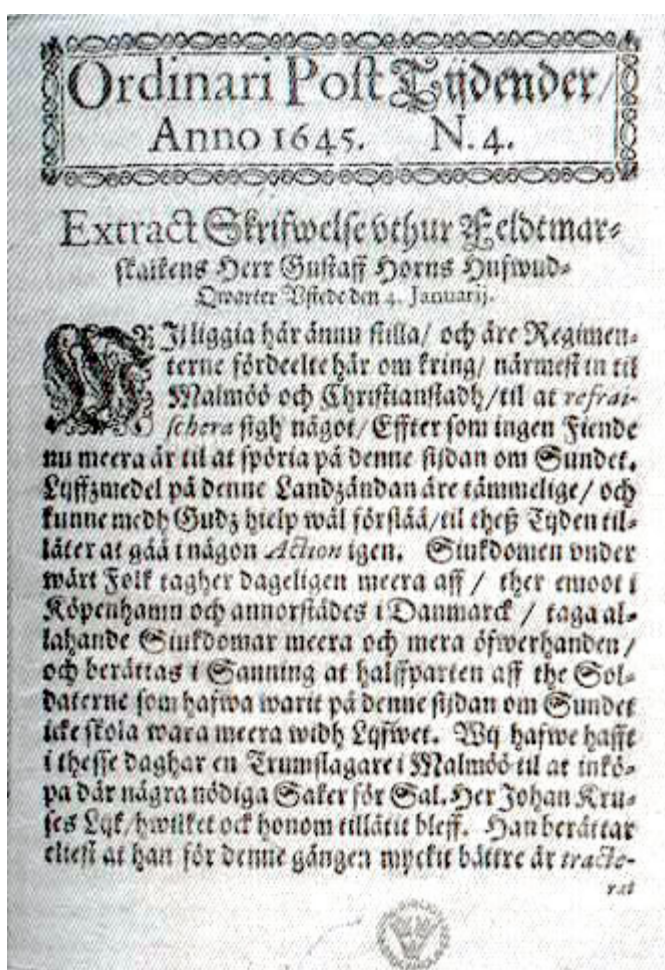 Ordinari Post Tijdender/
Anno 1645. N. 4.
Extract Skrifwelse vthur Feldtmar-
skalkens Herr Gustaff Horns Hufwud-
Qwarter Vstede den 4. Januarij.
WIj liggia här ännu stilla/ och äre Regimen-
terne fördeelte här om kring/ närmest in til
Malmöö och Christianstadh/til at refrai-
schera sigh något/ Effter som ingen Fiende
nu meera är til at spöria på denne sijdan om Sundet.
Lyffzmedel på denne Landzändan äre tämmelige/ och
kunne medh Gudz hielp wäl förslåå/til theß Tyden til-
låter at gåå i någon Action igen. Siukdomen vnder
wårt Folk tagher dageligen meera aff / ther emoot i
Köpenhamn och annorstädes i Danmarck / taga al-
lahande Siukdomar meera och mera öfwerhanden/
och berättas i Sanning at halffparten aff the Sol-
daterne som hafwa warit på denne sijdan om Sundet
icke skola wara meera widh Lyfwet. Wij hafwe hafft
i thesse daghar en Trumslagare i Malmöö til at inkö-
pa där några nödiga Saker för Sal. Her Johan Kru-
ses Lyk/hwilket ock honom tillåtit bleff. Han berättar
eliest at han för denne gången myckit bättre är tracte-
rat